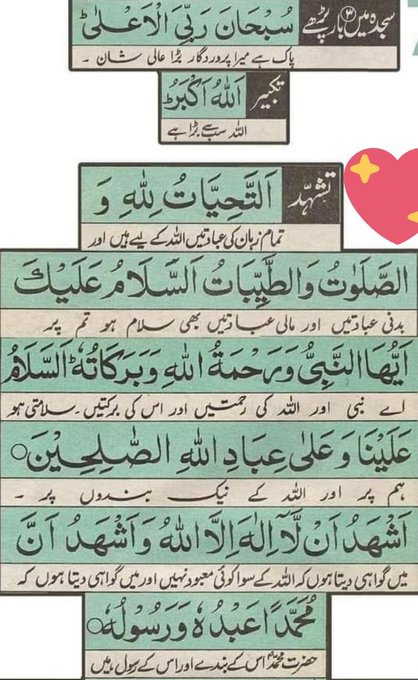 سجدہ میں ۳ بار پڑھے سُبْحَانَ رَبِّيَ الْاَعْلٰى ؕ
پاک ہے میرا پروردگار بڑا عالی شان ۔
تکبیر اَللّٰهُ اَكْبَرُ ؕ
اللہ سب سے بڑا ہے
تشہّد اَلتَّحِيَّاتُ لِلّٰهِ وَ
تمام زبان کی عبادتیں اللہ کے لیے ہیں اور
الصَّلَوٰتُ وَالطَّيِّبَاتُ اَلسَّلَامُ عَلَيْكَ
بدنی عبادتیں اور مالی عبادتیں بھی سلام ہو تم پر
اَيُّهَا النَّبِيُّ وَرَحْمَةُ اللّٰهِ وَبَرَكَاتُهٗ ؕ اَلسَّلَامُ
اے نبی اور اللہ کی رحمتیں اور اس کی برکتیں ۔ سلامتی ہو
عَلَيْنَا وَعَلٰى عِبَادِ اللّٰهِ الصّٰلِحِيْنَ ○
ہم پر اور اللہ کے نیک بندوں پر ۔
اَشْهَدُ اَنْ لَّآ اِلٰهَ اِلَّا اللّٰهُ وَاَشْهَدُ اَنَّ
میں گواہی دیتا ہوں کہ اللہ کے سوا کوئی معبود نہیں اور میں گواہی دیتا ہوں کہ
مُحَمَّدًا عَبْدُهٗ وَرَسُوْلُهٗ ○
حضرت محمدؐ اس کے بندے اور اس کے رسول ہیں